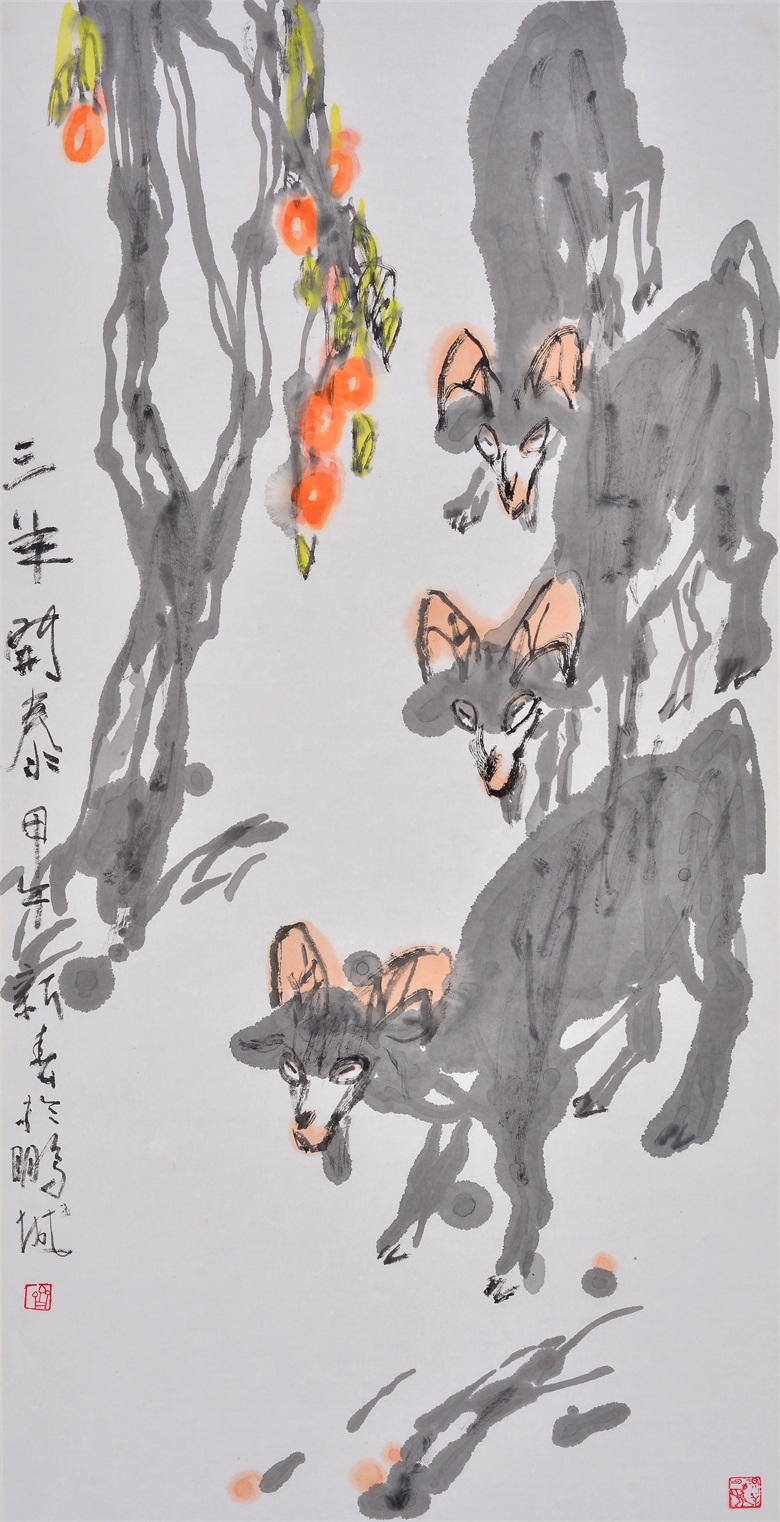 三羊開泰甲午新春於鵬城